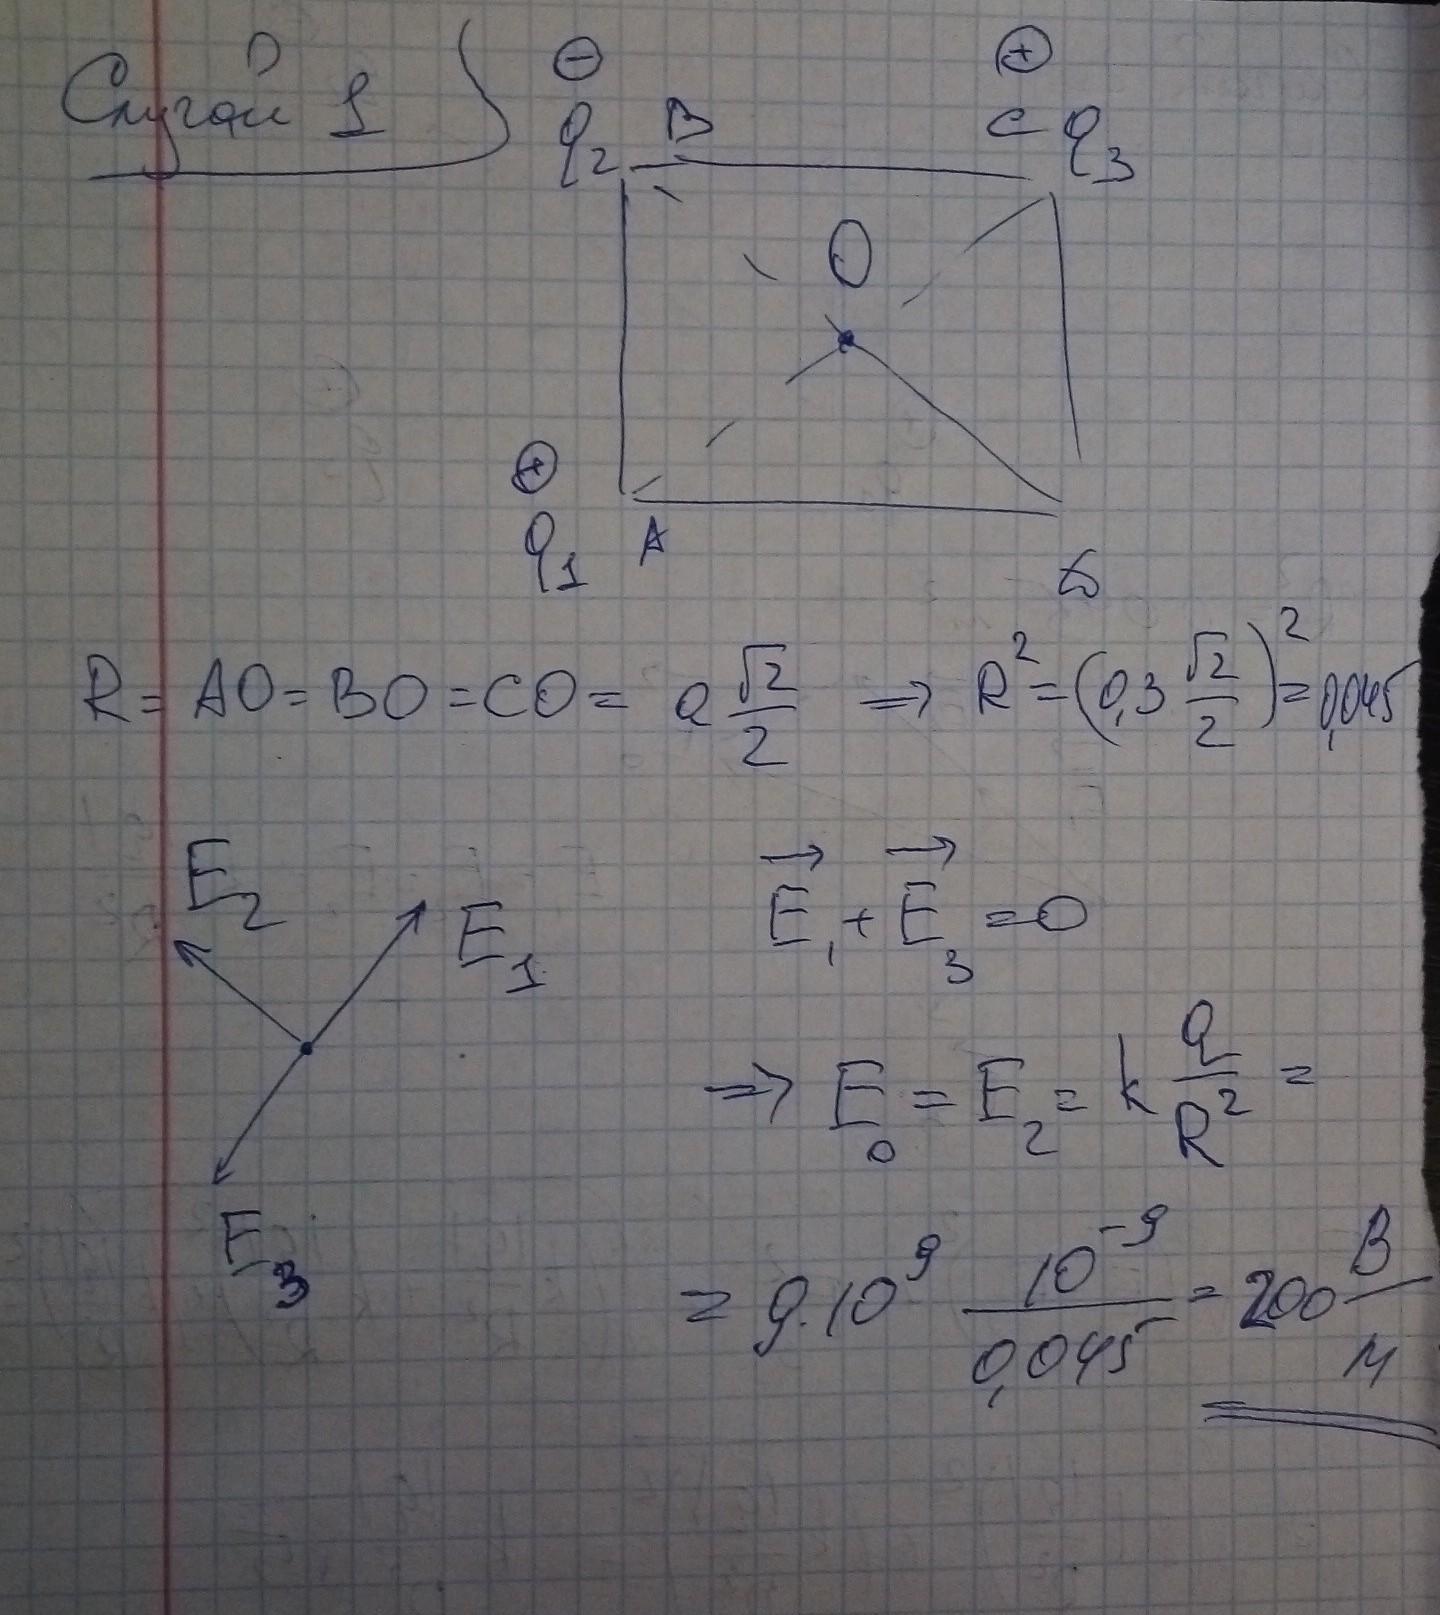 Случай 1
⊖ ⊕
q₂ B C q₃
O
⊕
q₁ A D
R = AO = BO = CO = a √2/2 ⇒ R² = (0,3 √2/2)² = 0,045
E₂ E₁ E⃗₁ + E⃗₃ = 0
⇒ E₀ = E₂ = k q/R² =
E₃
= 9·10⁹ 10⁻⁹/0,045 = 200 В/м